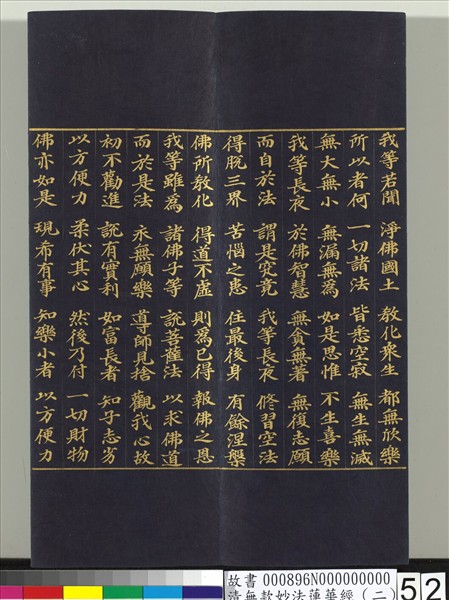 我等若聞 淨佛國土 教化衆生 都無欣樂
所以者何 一切諸法 皆悉空寂 無生無滅
無大無小 無漏無為 如是思惟 不生喜樂
我等長夜 於佛智慧 無貪無著 無復志願
而自於法 謂是究竟 我等長夜 修習空法
得脫三界 苦惱之患 住最後身 有餘涅槃
佛所教化 得道不虛 則為已得 報佛之恩
我等雖為 諸佛子等 說菩薩法 以求佛道
而於是法 永無願樂 導師見捨 觀我心故
初不勸進 說有實利 如富長者 知子志劣
以方便力 柔伏其心 然後乃付 一切財物
佛亦如是 現希有事 知樂小者 以方便力
故書 000896N000000000
清無款妙法蓮華經（二）
52